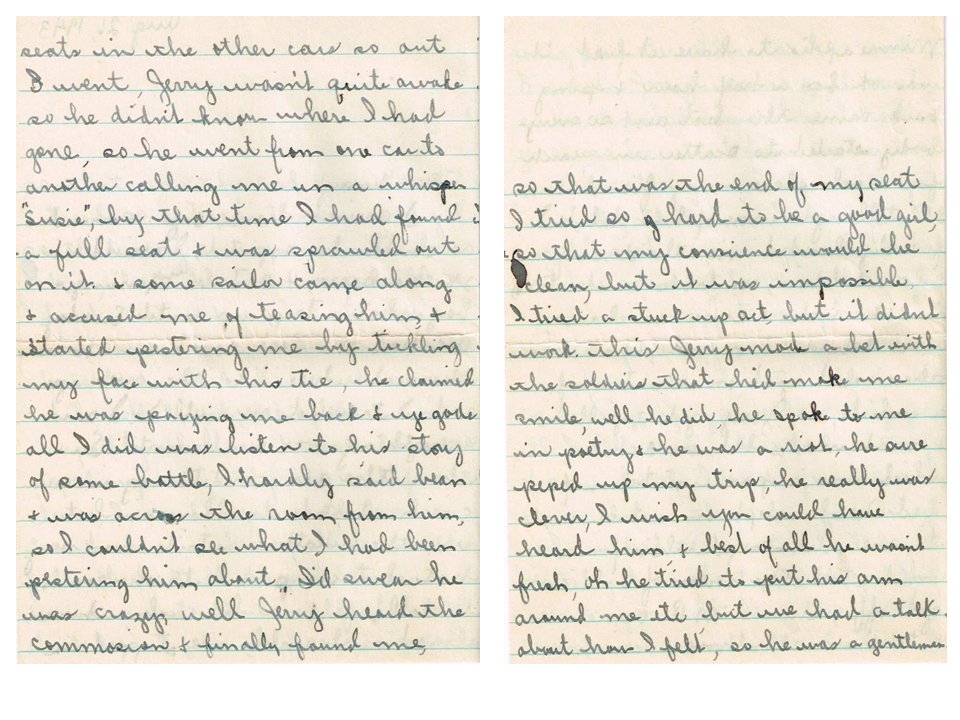 seats in the other cars so out
I went, Jerry wasn't quite awake
so he didn't know where I had
gone, so he went from one car to
another calling me in a whisper
"Susie", by that time I had found
a full seat & was sprawled out
on it. & some sailor came along
& accused me of teasing him, &
started pestering me by tickling
my face with his tie, he claimed
he was paying me back & ye gods
all I did was listen to his story
of some battle, I hardly said bean
& was across the room from him,
so I couldn't see what I had been
pestering him about. I'd swear he
was crazy, well Jerry heard the
commosion & finally found me,
so that was the end of my seat
I tried so hard to be a good girl,
so that my conscience would be
clean, but it was impossible,
I tried a stuck up act, but it didn't
work. this Jerry mad a bet with
the soldiers that he'd make me
smile, well he did, he spok to me
in poetry & he was a riot, he sure
peped up my trip, he really was
clever, I wish you could have
heard him & best of all he wasn't
fresh, oh he tried to put his arm
around me etc but we had a talk
about how I felt, so he was a gentleman